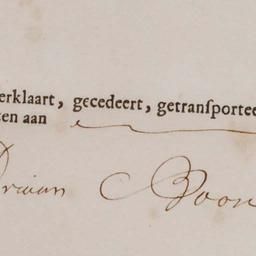 erklaart, gecedeert, getranſportee
en aan
Adriaan Boon